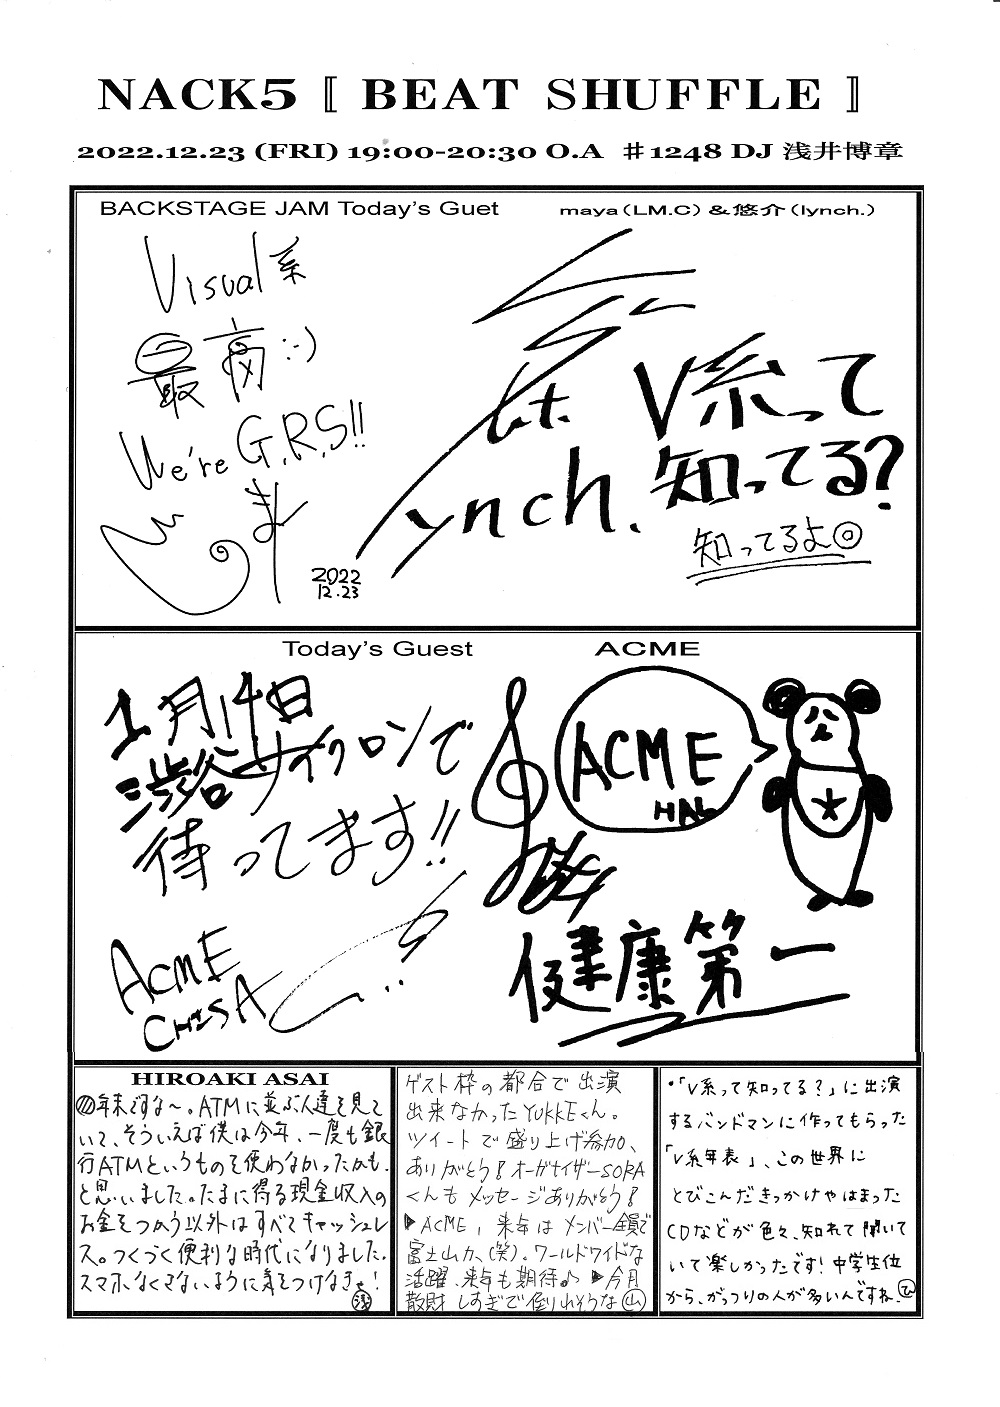 NACK5 〚 BEAT SHUFFLE 〛
2022.12.23 (FRI) 19:00-20:30 O.A ♯1248 DJ 浅井博章
BACKSTAGE JAM Today's Guet maya(LM.C)&悠介(lynch.)
Visual系
最高 :-)
We're G.R.S!!
2022
12.23
lynch.
V系って
知ってる?
知ってるよ◎
Today's Guest ACME
1月14日
渋谷サイクロンで
待ってます!!
ACME
CHISA
ACME
HAL
健康第一
HIROAKI ASAI
年末ですな〜。ATMに並ぶ人達を見て
いて、そういえば僕は今年、一度も銀
行ATMというものを使わなかったかも、
と思いました。たまに得る現金収入の
お金をつかう以外はすべてキャッシュレ
ス。つくづく便利な時代になりました。
スマホなくさないように気をつけなきゃ! 浅
ゲスト枠の都合で出演
出来なかったYUKKEくん。
ツイートで盛り上げ参加、
ありがとう!オーガナイザーSORA
くんもメッセージありがとう!
▶ACME,来年はメンバー全員で
富士山か、(笑)。ワールドワイドな
活躍、来年も期待♪ ▶今月
散財しすぎで倒れそうな 山
・「V系って知ってる?」に出演
するバンドマンに作ってもらった
「V系年表」、この世界に
とびこんだきっかけやはまった
CDなどが色々、知れて聞いて
いて楽しかったです!中学生位
から、がっつりの人が多いんですね。 ひ